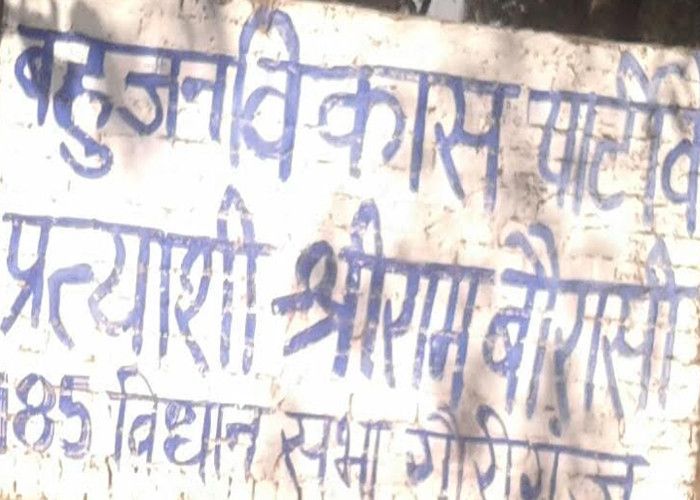 बहुजन विकास पार्टी वि
प्रत्याशी श्रीराम बौरासी
185 विधान सभा गौरीगंज